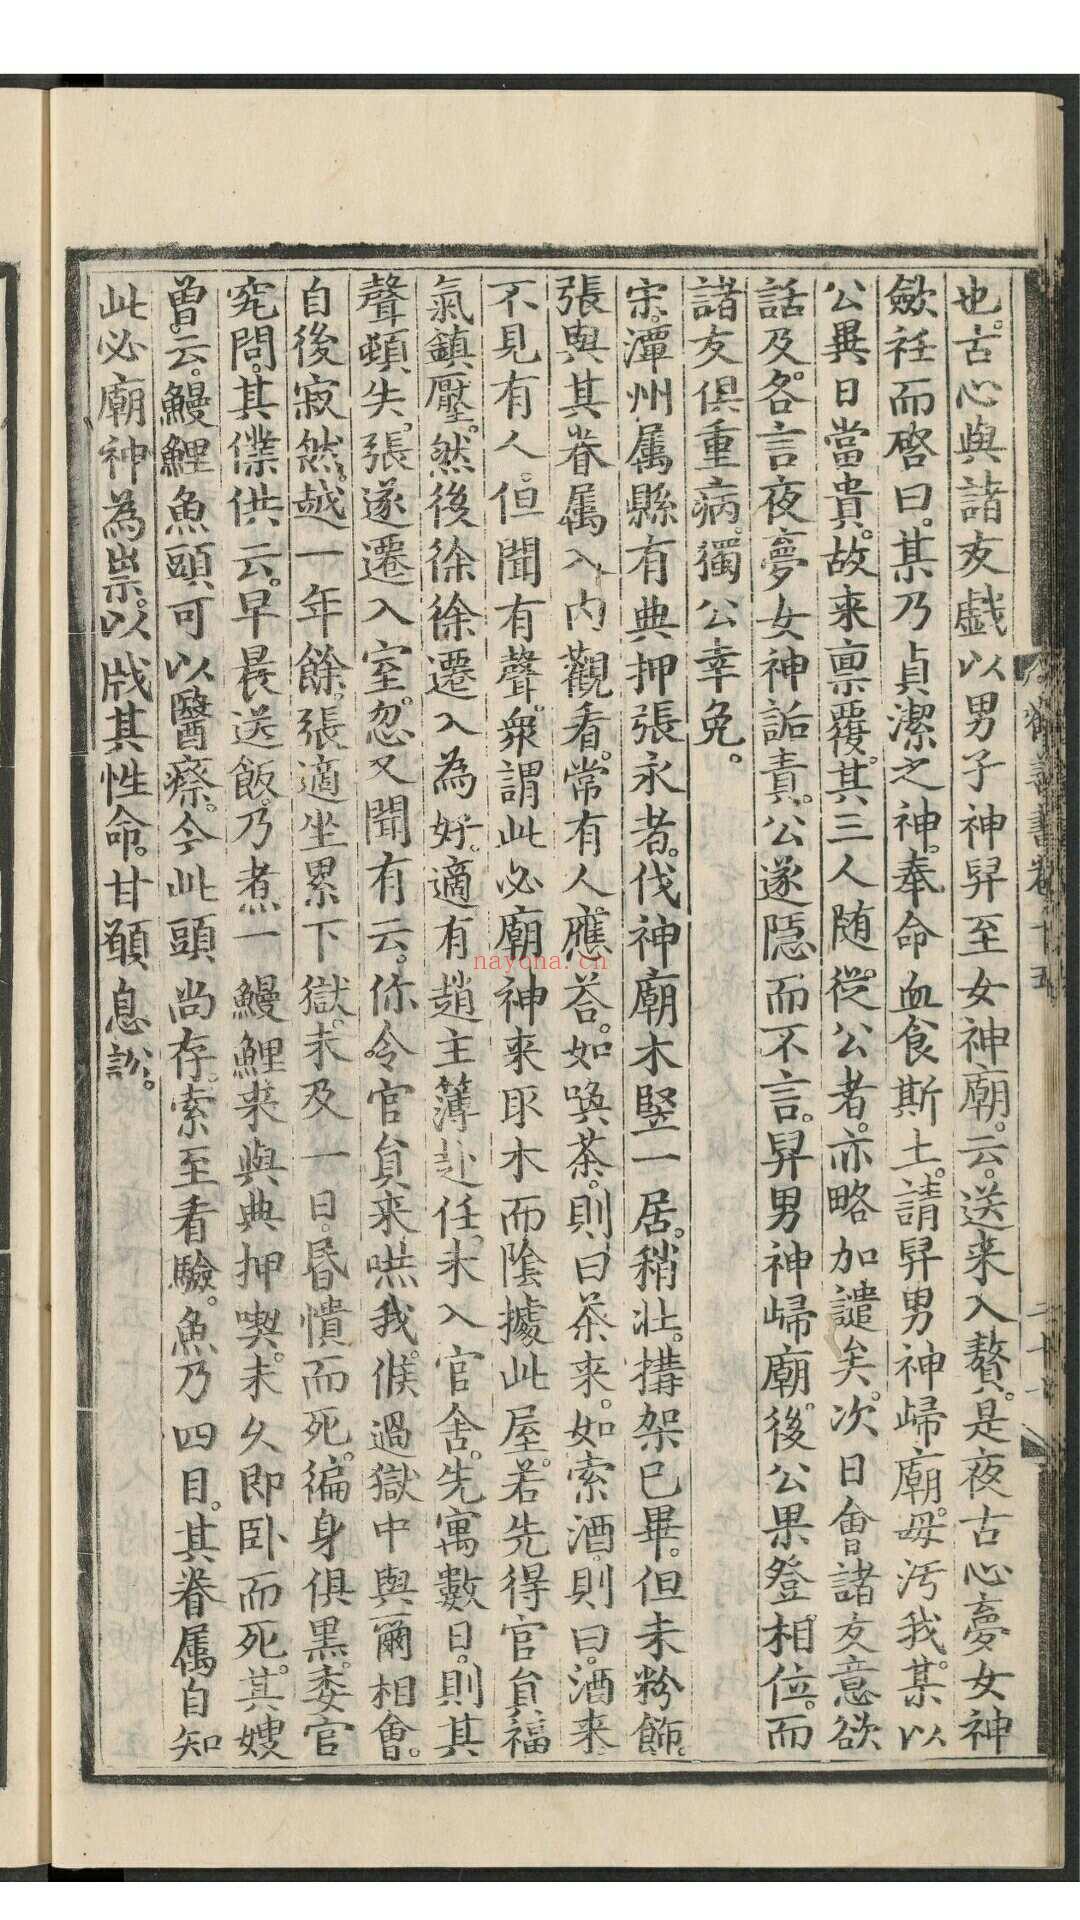 也。古心與諸友戯以男子神舁至女神廟。云。送来入贅。是夜古心夢女神
斂衽而啓曰。某乃貞潔之神。奉命血食斯土。請舁男神歸廟。毋汚我。某以
公異日當貴。故来禀覆。其三人随從公者。亦略加譴矣。次日會諸友意欲
話及。各言夜夢女神詬責。公遂隠而不言。舁男神歸廟。後公果登相位。而
諸友俱重病。獨公幸免。
宋。潭州属縣有典押張永者。伐神廟木竪一居。稍壮。搆架已畢。但未粉飾。
張與其眷属入内觀看。常有人應荅。如喚茶。則曰茶来。如索酒。則曰。酒来
不見有人。但聞有聲。衆謂此必廟神来取木而陰據此屋。若先得官員福
氣鎮壓。然後徐徐遷入為好。適有趙主簿赴任。未入官舍。先寓數日。則其
聲頓失。張遂遷入室。忽又聞有云。你令官員来唬我。候過獄中與爾相會。
自後寂然。越一年餘。張適坐累下獄。未及一日。昏憒而死。徧身俱黒。委官
究問。其僕供云。早晨送飯。乃煮一鰻鯉来與典押喫。未久即卧而死。其嫂
曾云。鰻鯉魚頭可以醫瘵。今此頭尚存。索至看驗。魚乃四目。其眷属自知
此必廟神為祟。以戕其性命。甘願息訟。
勸善書卷十五
nayona.cn